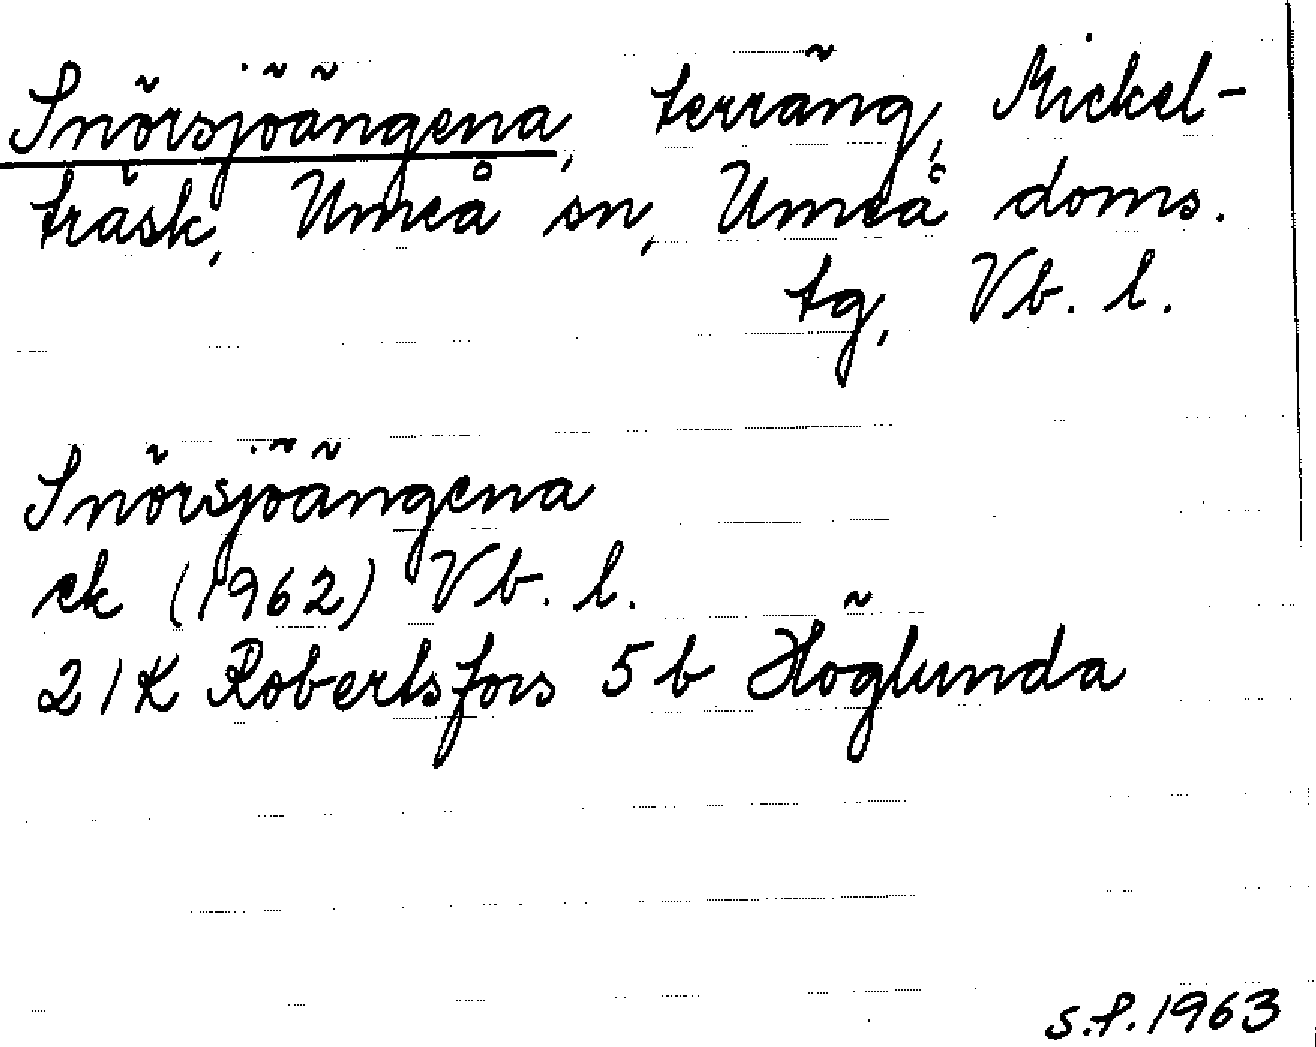 Snörsjöängena, terräng, Mickel-
träsk, Umeå sn, Umeå doms.
tg, Vb. l.
Snörsjöängena
ek (1962) Vb. l.
21K Robertsfors 5b Höglunda
s.f. 1963